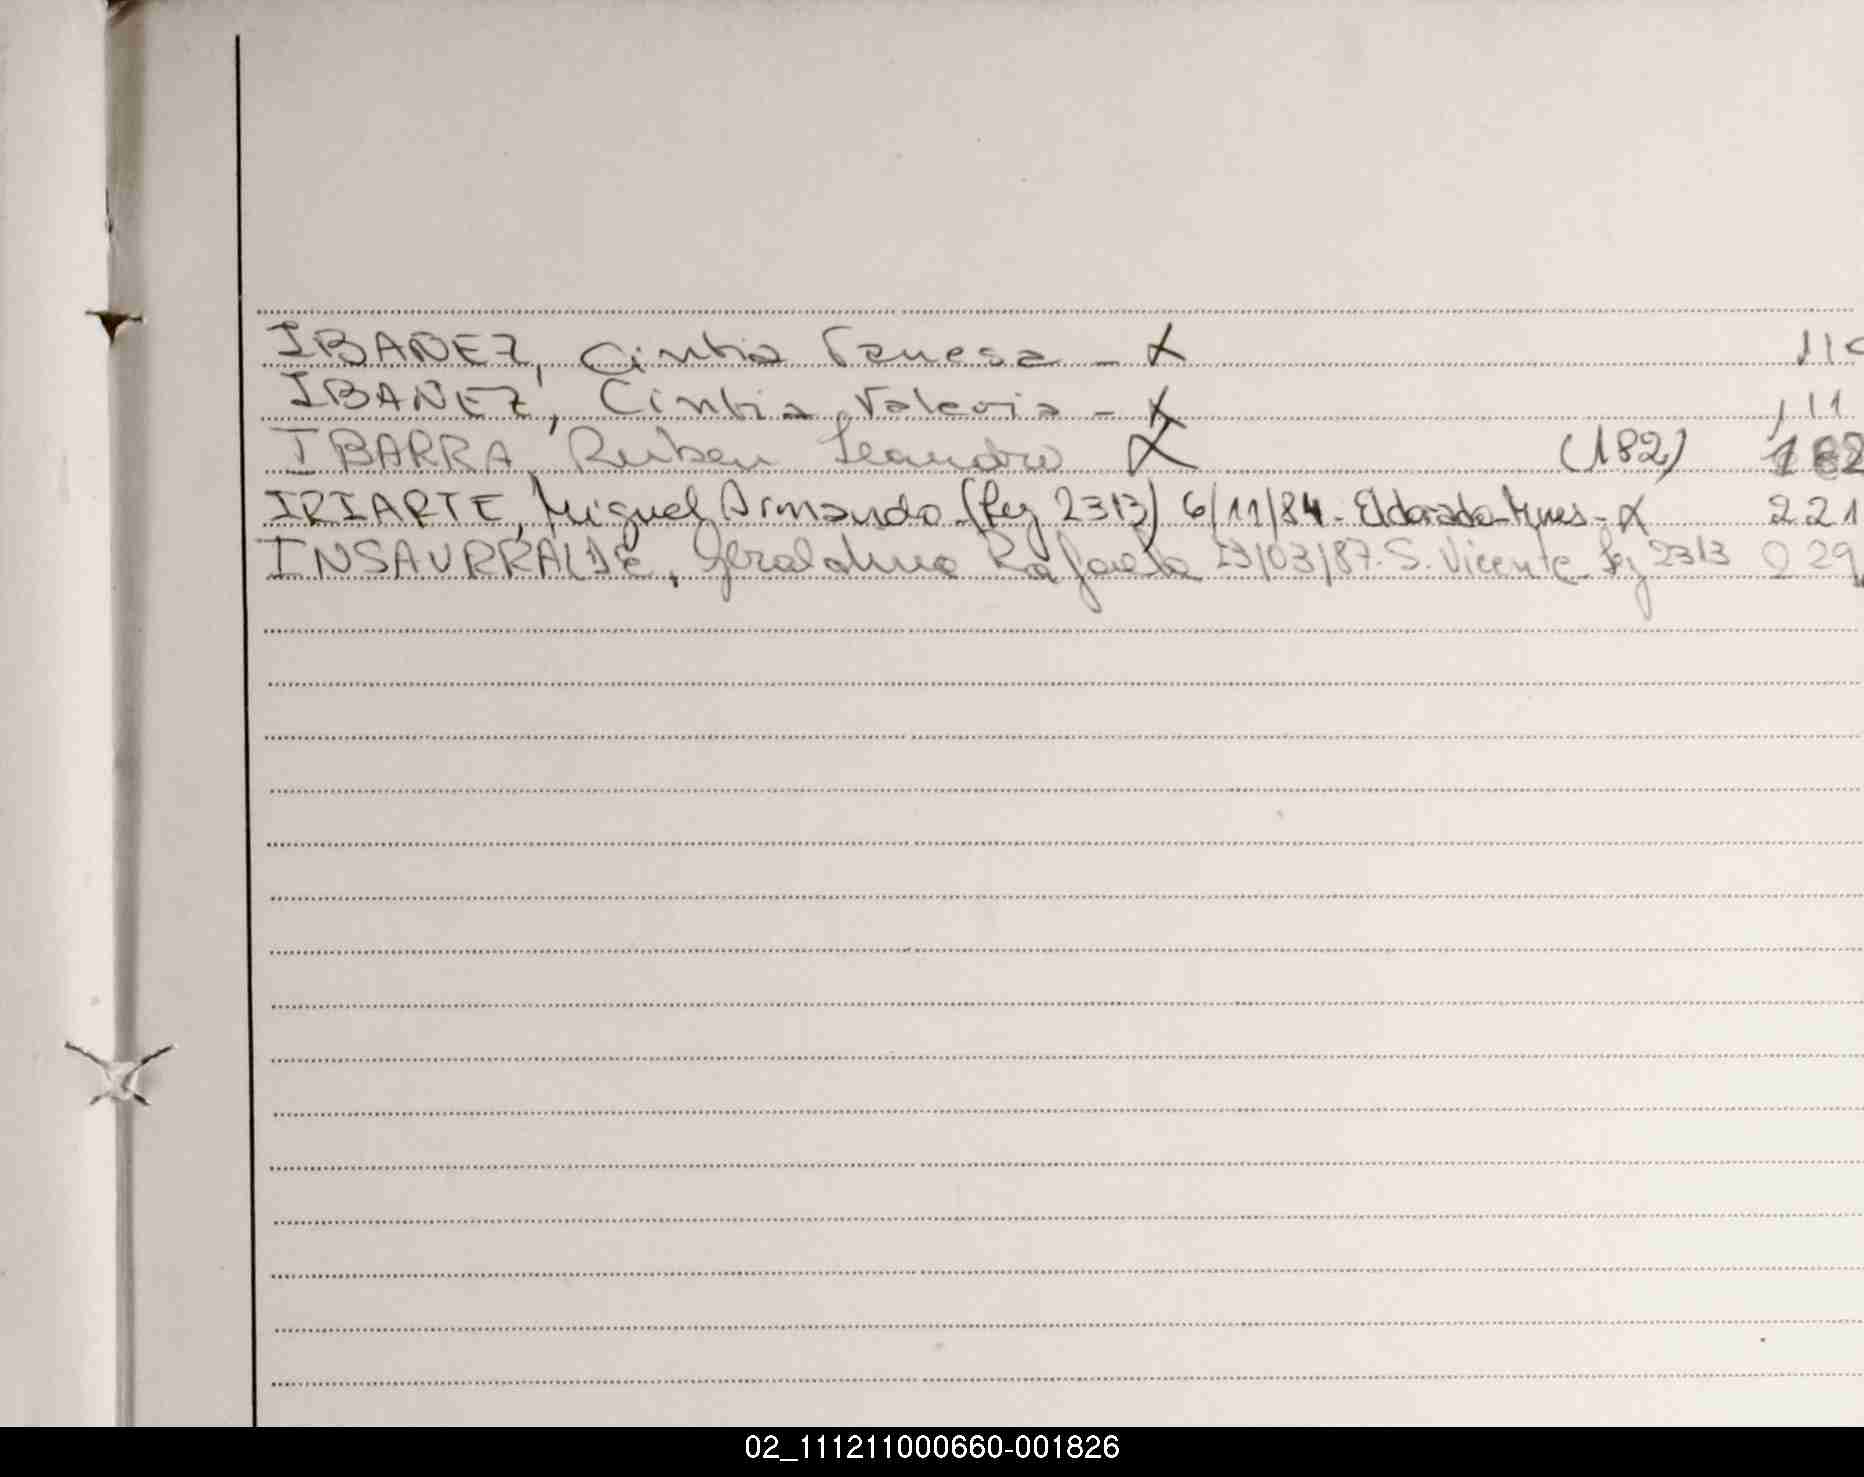 IBAÑEZ, Cintia Vanesa - X 110
IBAÑEZ, Cintia Valeria - X 111
IBARRA, Ruben Leandro X (182) 182
IRIARTE, Miguel Armando (Ley 2313) 6/11/84 - Eldorado - Mnes - X 221
INSAURRALDE, Geraldina Rafaela 23/03/87. S. Vicente Ley 2313 029
02_111211000660-001826